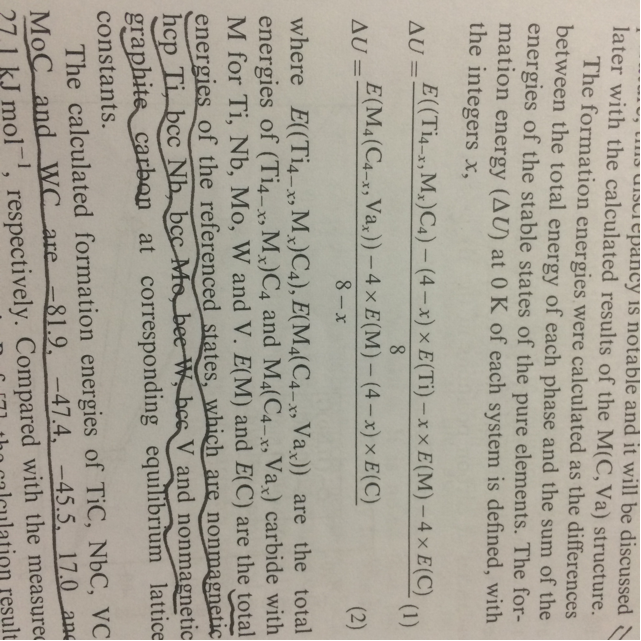 later with the calculated results of the M(C, Va) structure.
The formation energies were calculated as the differences
between the total energy of each phase and the sum of the
energies of the stable states of the pure elements. The for-
mation energy (ΔU) at 0 K of each system is defined, with
the integers x,
ΔU = E((Ti₄₋ₓ, Mₓ)C₄) − (4 − x) × E(Ti) − x × E(M) − 4 × E(C)
8
(1)
ΔU = E(M₄(C₄₋ₓ, Vaₓ)) − 4 × E(M) − (4 − x) × E(C)
8 − x
(2)
where E((Ti₄₋ₓ, Mₓ)C₄), E(M₄(C₄₋ₓ, Vaₓ)) are the total
energies of (Ti₄₋ₓ, Mₓ)C₄ and M₄(C₄₋ₓ, Vaₓ) carbide with
M for Ti, Nb, Mo, W and V. E(M) and E(C) are the total
energies of the referenced states, which are nonmagnetic
hcp Ti, bcc Nb, bcc Mo, bcc W, bcc V and nonmagnetic
graphite carbon at corresponding equilibrium lattice
constants.
The calculated formation energies of TiC, NbC, VC
MoC and WC are −81.9, −47.4, −45.5, 17.0 and
27.1 kJ mol⁻¹, respectively. Compared with the measured
calculation results